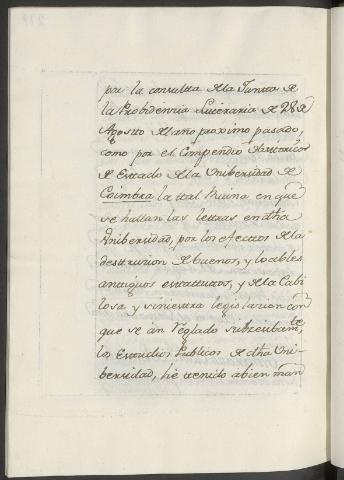 por la consulta de la Junta de
la Probidencia Literaria de 28 de
Agosto del año proximo pasado,
como por el Compendio
de Estado de la Unibersidad de
Coimbra la ttal Ruina en que
se hallan las letras en dha
Unibersidad, por los efectos de la
destruzion de buenos, y loables
antiguos estattutos, y de la Cabi
losa, y siniestra legislazion con
que se án Reglado subzesibamte
los Estudios Publicos de dha Uni-
bersidad, hé tenido abien man